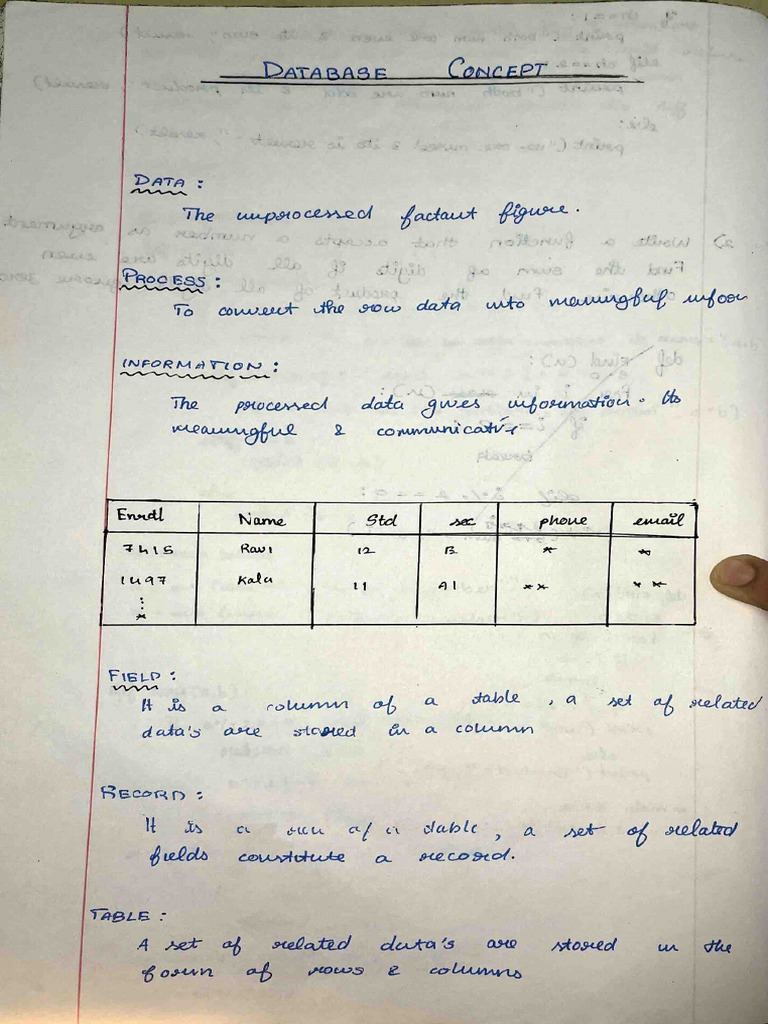 DATABASE CONCEPT
DATA :
The unprocessed factant figure.
PROCESS :
To convert the row data into meaningful infor
INFORMATION :
The processed data gives information. Its
meaningful & communicative
Enroll Name Std sec phone email
7415 Ravi 12 B * *
1497 Kala 11 A1 ** **
*
FIELD :
It is a column of a table , a set of related
data's are stored in a column
RECORD :
It is a row of a table , a set of related
fields constitute a record.
TABLE :
A set of related data's are stored in the
form of rows & columns